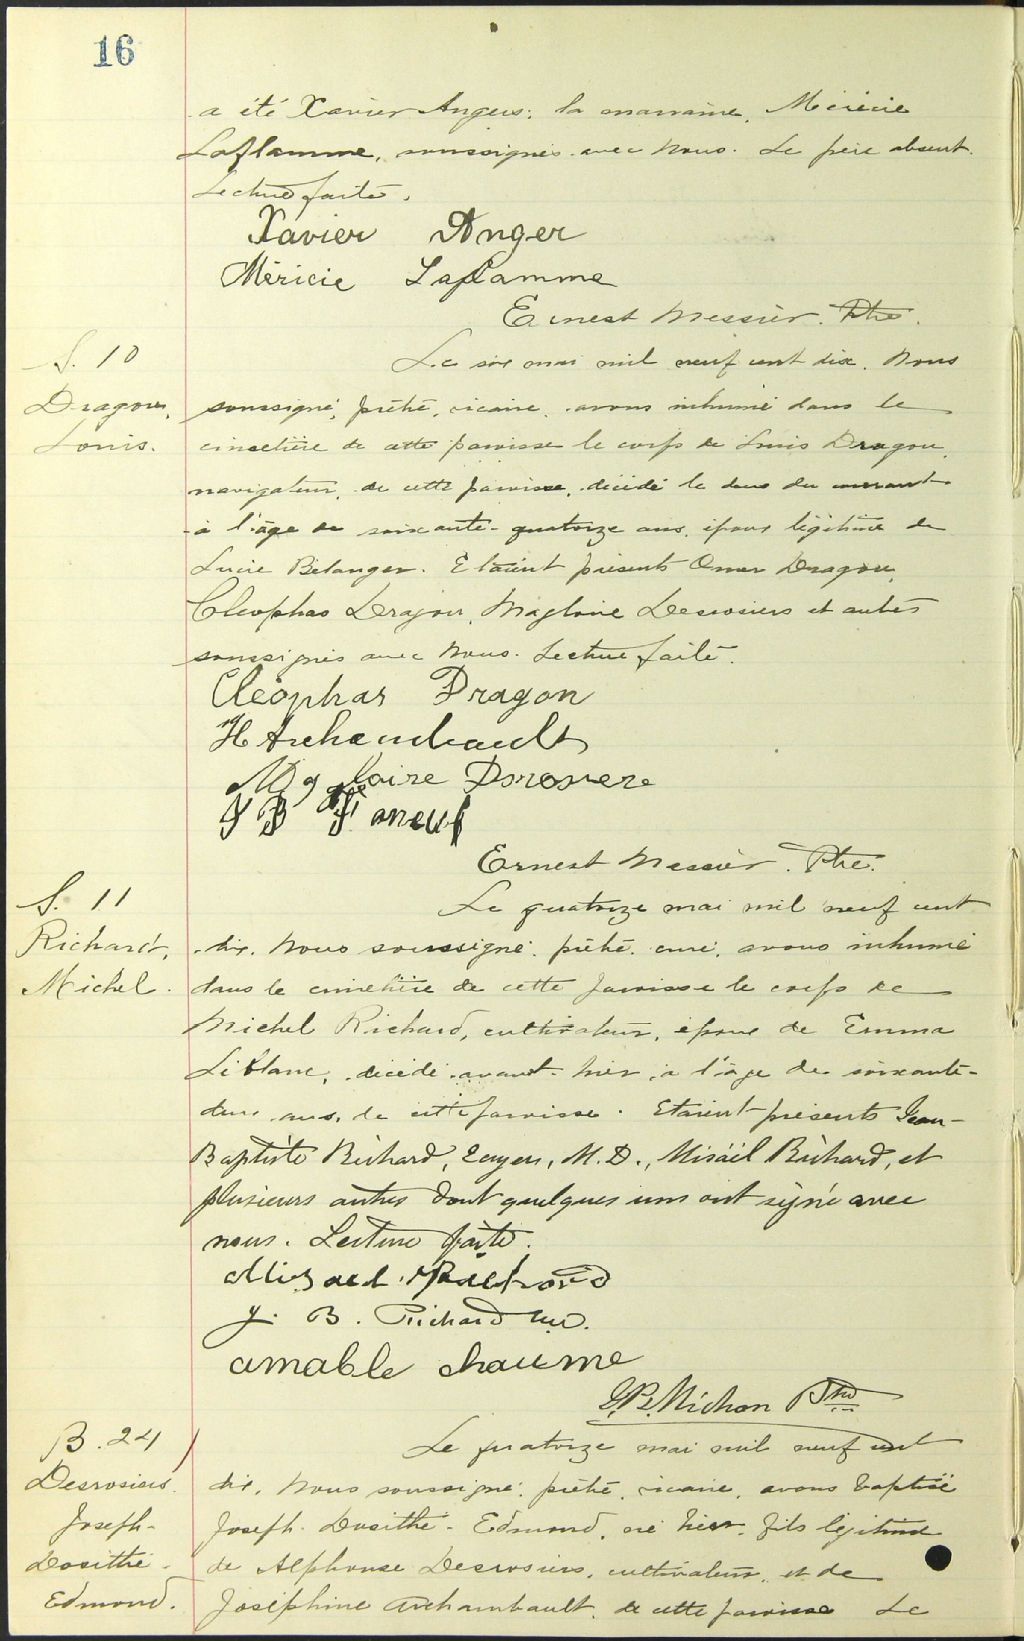 16
a été Xavier Angers; la marraine, Méricie
Laflamme, soussignés avec nous. Le père absent.
Lecture faite.
Xavier Anger
Méricie Laflamme
Ernest Messier. Ptre.
S. 10
Dragon,
Louis.
Le six mai mil neuf cent dix. Nous
soussigné, prêtre, vicaire, avons inhumé dans le
cimetière de cette paroisse le corps de Louis Dragon,
navigateur, de cette paroisse, décédé le deux du courant
à l'âge de soixante-quatorze ans, époux légitime de
Lucie Bélanger. Etaient présents Omer Dragon,
Cléophas Dragon, Magloire Desrosiers et autres
soussignés avec nous. Lecture faite.
Cléophas Dragon
H Archambault
Magloire
J B Faneuf
Ernest Messier. Ptre.
S. 11
Richard,
Michel.
Le quatorze mai mil neuf cent
dix, Nous soussigné, prêtre curé, avons inhumé
dans le cimetière de cette paroisse le corps de
Michel Richard, cultivateur, époux de Emma
Leblanc, décédé avant-hier, à l'âge de soixante-
deux ans, de cette paroisse. Etaient présents Jean-
Baptiste Richard, Ecuyer, M.D., Misaël Richard, et
plusieurs autres dont quelques uns ont signé avec
nous. Lecture faite.
Misael Richard
J. B. Richard M.D.
amable chaume
J.B. Michon Ptre
B. 24
Desrosiers
Joseph-
Dosithé-
Edmond.
Le quatorze mai mil neuf cent
dix, Nous soussigné, prêtre, vicaire, avons baptisé
Joseph-Dosithé-Edmond, né hier, fils légitime
de Alphonse Desrosiers, cultivateur, et de
Joséphine Archambault, de cette paroisse Le